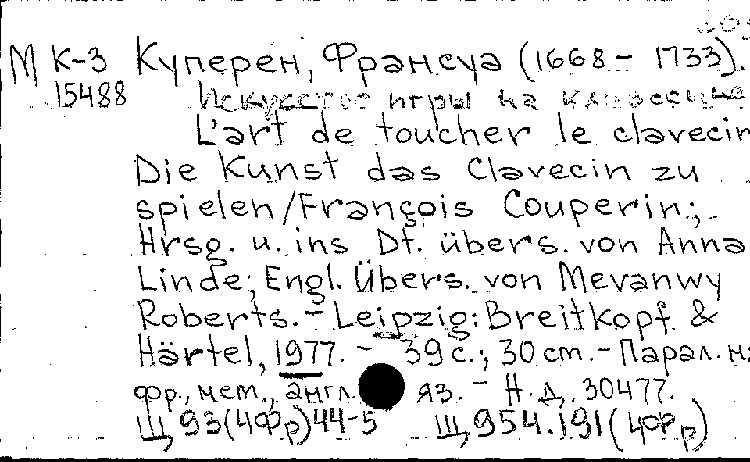 М К-3 Куперен, Франсуа (1668 - 1733).
15488 Искусство игры на клавесине
L'art de toucher le clavecin
Die Kunst das Clavecin zu
spielen/François Couperin;
Hrsg. u. ins Dt. übers. von Anna
Linde; Engl. Übers. von Mevanwy
Roberts. - Leipzig: Breitkopf &
Härtel, 1977. - 39 с.; 30 cm. - Парал. на
фр., нем., англ. яз. - Н. д. 30477.
Щ 93(4Фр)44-5 Щ 954.191(4Фр)